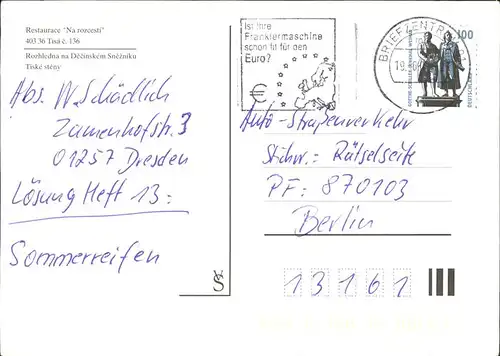 Restaurace "Na rozcestí"
403 36 Tisá č. 136
Rozhledna na Děčínském Sněžníku
Tiské stěny
Abs. W. Schädlich
Zamenhofstr. 3
01257 Dresden
Lösung Heft 13:
Sommerreifen
Ist Ihre
Frankiermaschine
schon fit für den
Euro?
€
BRIEFZENTRUM
19.
100
DEUTSCHLAND
Auto-Straßenverkehr
Stichw.: Rätselseite
PF: 870103
Berlin
13161